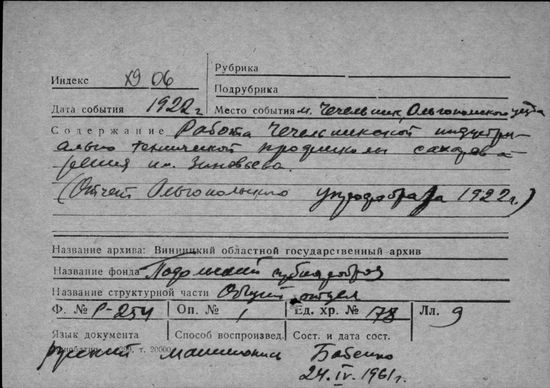 Рубрика
Индекс XIX 06
Подрубрика
Дата события 1922 г Место события м. Чечельник, Ольгопольского уезда
Содержание Работа Чечельникской индустри-
ально технической профшколы сахарова-
рения им. Зиновьева.
(Отчет Ольгопольского упрофобра за 1922 г.)
Название архива: Винницкий областной государственный архив
Название фонда Подольский губпрофобр
Название структурной части Общий отдел
Ф. № Р-254 Оп. № 1 Ед. хр. № 78 Лл. 9
Язык документа Способ воспроизвед. Сост. и дата сост.
т. 20000
русский машинопись Бабенко
24.IV.1961 г.